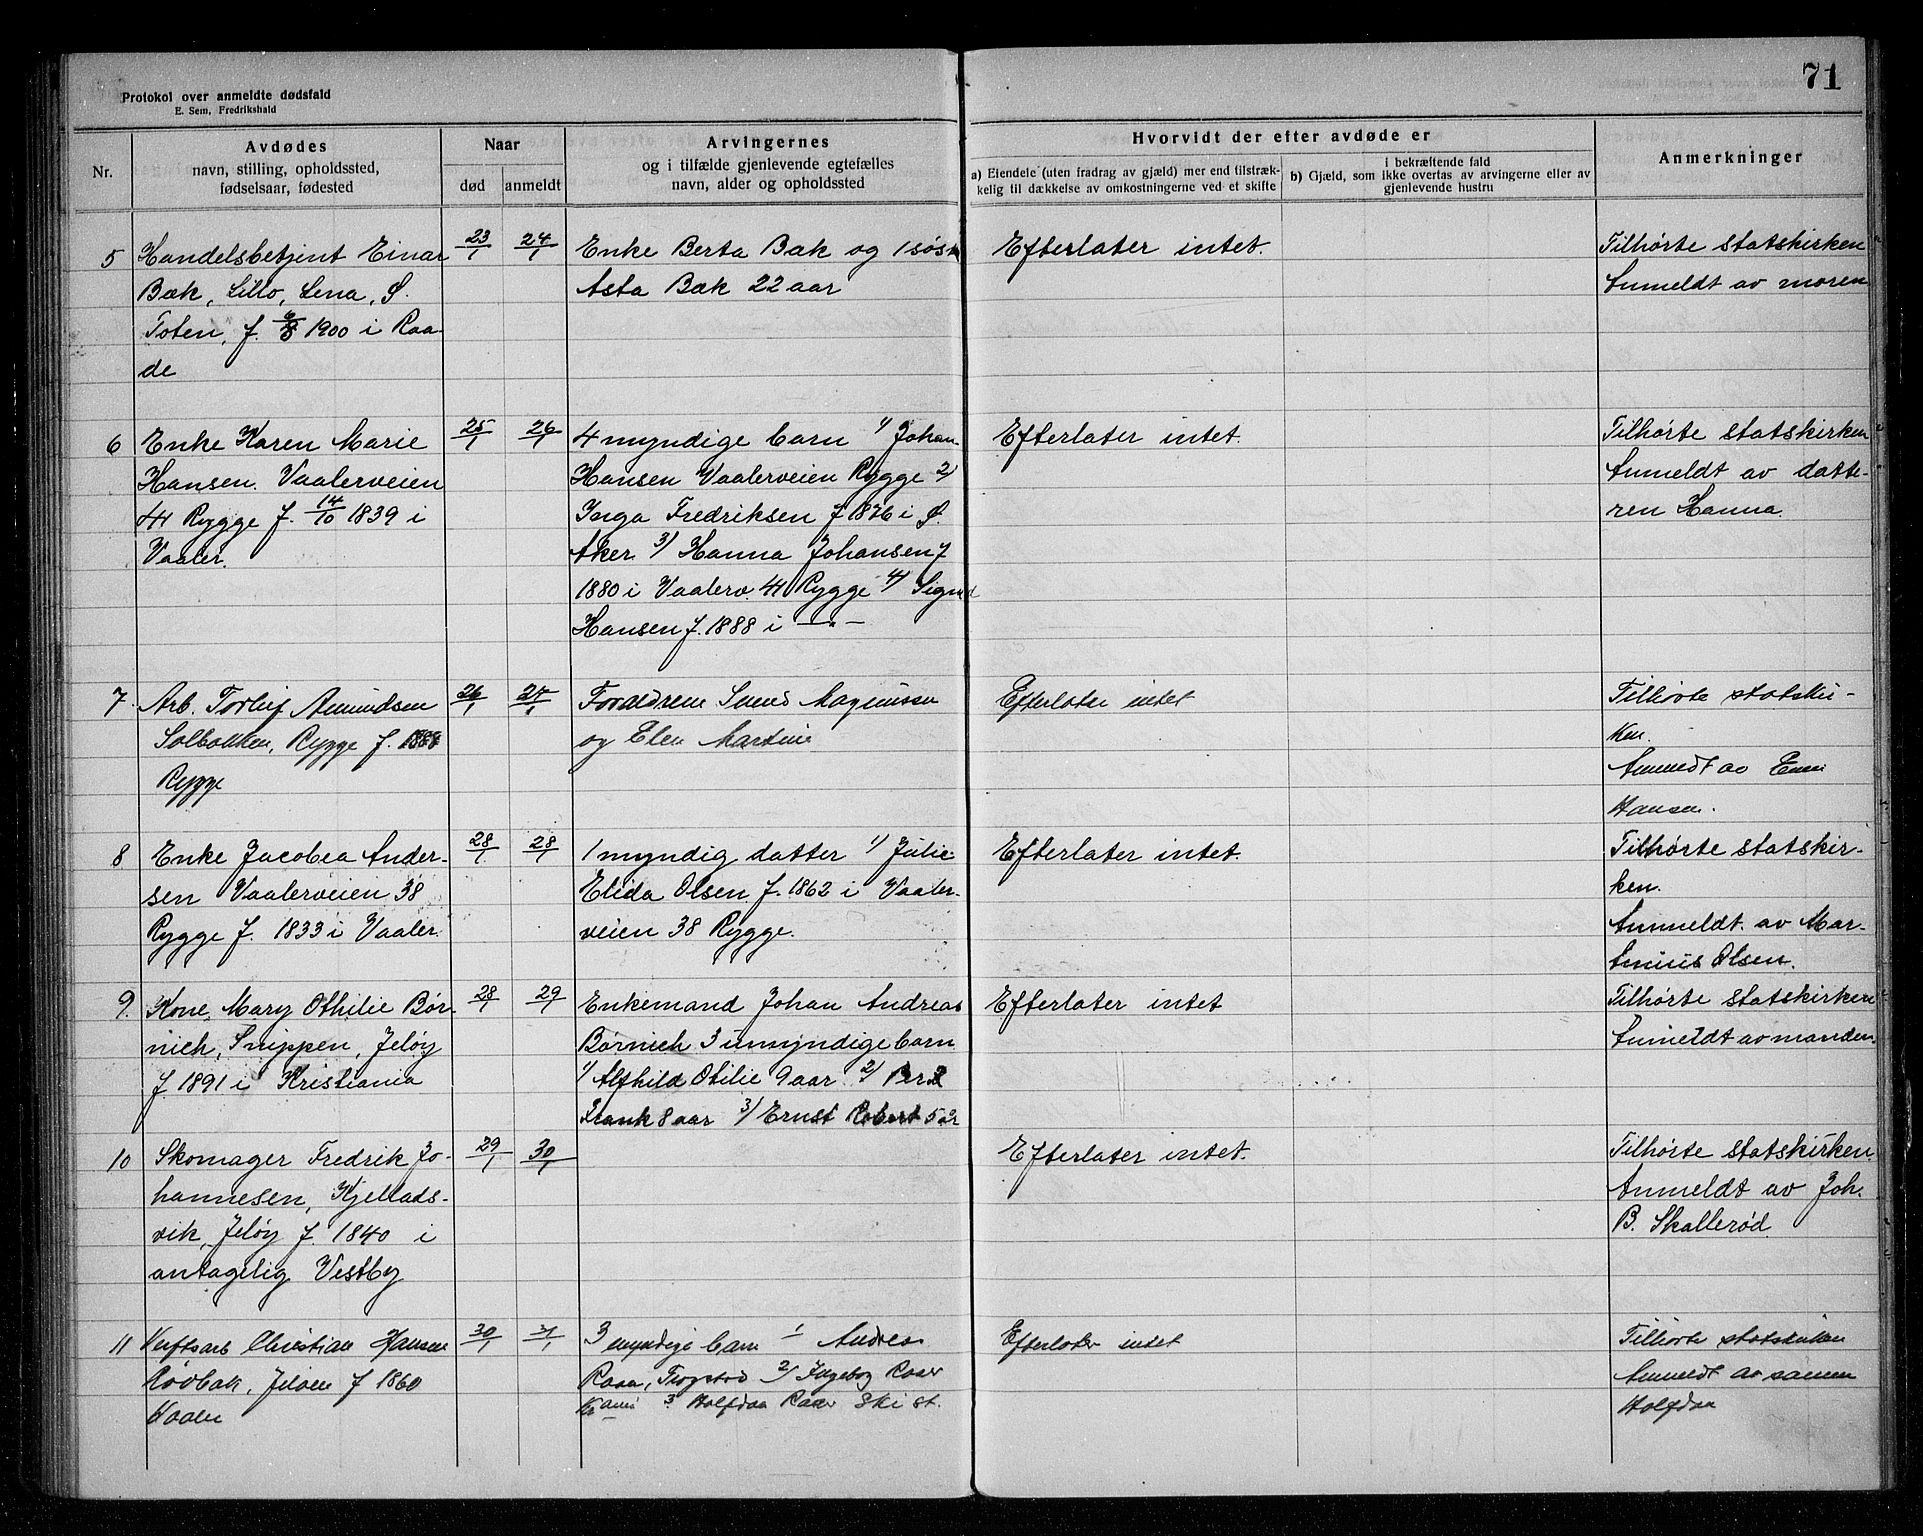 71
Protokol over anmeldte dødsfald
E. Sem, Fredrikshald
Nr.
Avdødes
navn, stilling, opholdssted,
fødselsaar, fødested
Naar
død
anmeldt
Arvingernes
og i tilfælde gjenlevende egtefælles
navn, alder og opholdssted
Hvorvidt der efter avdøde er
a) Eiendele (uten fradrag av gjæld) mer end tilstræk-
kelig til dækkelse av omkostningerne ved et skifte
i bekræftende fald
b) Gjæld, som ikke overtas av arvingerne eller av
gjenlevende hustru
Anmerkninger
5
Handelsbetjent Einar
Bæk, Lillo, Lena, Ø.
Toten, f. 6/8 1900 i Raa-
de
23/1
24/1
Enke Berta Bæk og 1 søst
Asta Bæk 22 aar
Efterlater intet.
Tilhørte statskirken
Anmeldt av moren
6
Enke Karen Marie
Hansen. Vaalerveien
41 Rygge f. 14/10 1839 i
Vaaler.
25/1
26/1
4 myndige barn 1/ Johan
Hansen Vaalerveien Rygge 2/
Inga Fredriksen f 1876 i Ø.
Aker 3/ Hanna Johansen f
1880 i Vaalerv. 41 Rygge 4/ Signe
Hansen f. 1888 i —„—
Efterlater intet.
Tilhørte statskirken
Anmeldt av datte-
ren Hanna.
7.
Arb. Torleif Amundsen
Solbakken, Rygge f. 1888
Rygge
26/1
27/1
Forældrene Svend Magnussen
og Elen Martine
Efterlater intet
Tilhørte statskir-
ken.
Anmeldt av
Hansen.
8
Enke Jacobea Ander-
sen Vaalerveien 38
Rygge f. 1833 i Vaaler.
28/1
28/1
1 myndig datter 1/ Julie
Elida Olsen f. 1862 i Vaaler-
veien 38 Rygge.
Efterlater intet.
Tilhørte statskir-
ken.
Anmeldt av Mar-
tinius Olsen.
9.
Kone Mary Othilie Bør-
nich, Snippen, Jeløy
f. 1891 i Kristiania
28/1
29/1
Enkemand Johan Andreas
Børnich 3 umyndige barn
1/ Alfhild Otilie 9 aar 2/
Frank 8 aar 3/ Ernst Robert 5 år
Efterlater intet
Tilhørte statskirken
Anmeldt av manden.
10
Skomager Fredrik Jo-
hannesen, Kjellads-
vik, Jeløy f. 1840 i
antagelig Vestby
29/1
30/1
Efterlater intet.
Tilhørte statskirken.
Anmeldt av Joh.
B. Skallerød.
11
Verftsarb Christian Hansen
Rødbak, Jeløen f 1860
Vaaler
30/1
31/1
3 myndige barn 1 Andrea
Roser, Trøgstad 2/ Ingeborg Roser
3 Halfdan Roser Ski st.
Efterlater intet
Tilhørte statskirken
Anmeldt av sønnen
Halfdan